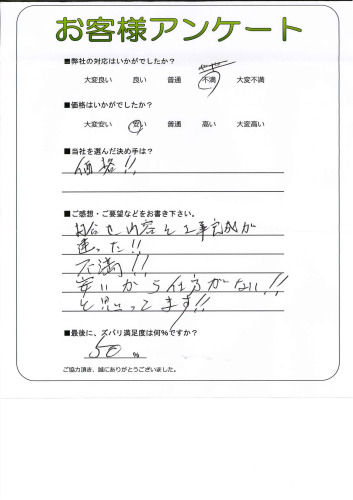 お客様アンケート
■弊社の対応はいかがでしたか?
大変良い 良い 普通 不満 大変不満
■価格はいかがでしたか?
大変安い 安い 普通 高い 大変高い
■当社を選んだ決め手は?
価格!!
■ご感想・ご要望などをお書き下さい。
内容と工事完成が
違った!!
不満!!
安いから仕方がない!!
と思ってます!!
■最後に、ズバリ満足度は何%ですか?
50 %
ご協力頂き、誠にありがとうございました。